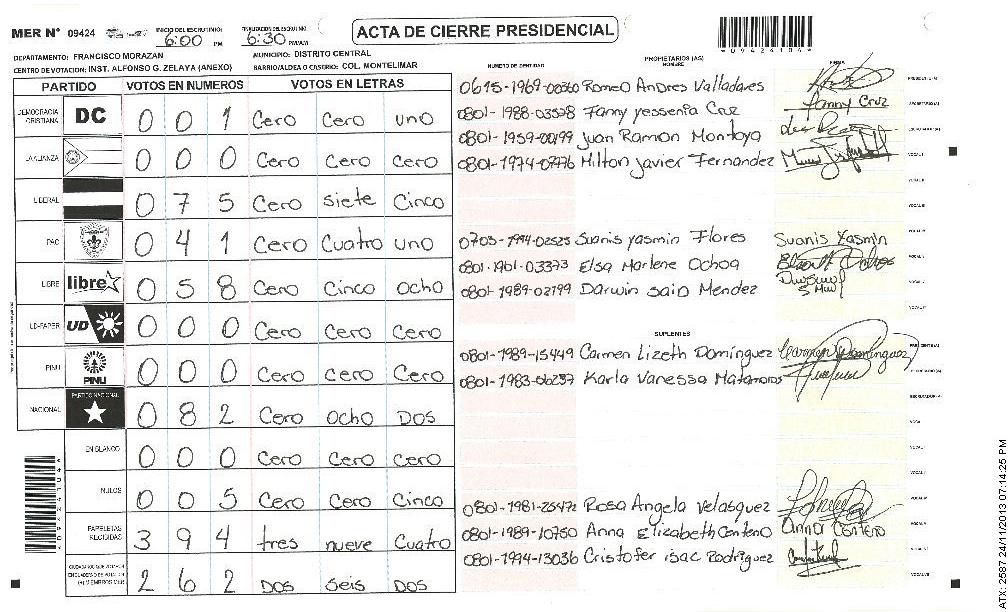 MER N° 09424
INICIO DEL ESCRUTINIO: 6:00 PM
FINALIZACION DEL ESCRUTINIO: 6:30 PM/AM
ACTA DE CIERRE PRESIDENCIAL
DEPARTAMENTO: FRANCISCO MORAZAN
MUNICIPIO: DISTRITO CENTRAL
CENTRO DE VOTACION: INST. ALFONSO G. ZELAYA (ANEXO)
BARRIO/ALDEA O CASERIO: COL. MONTELIMAR
PARTIDO VOTOS EN NUMEROS VOTOS EN LETRAS
DEMOCRACIA CRISTIANA DC 0 0 1 Cero Cero uno
LA ALIANZA 0 0 0 Cero Cero Cero
LIBERAL 0 7 5 Cero siete Cinco
PAC 0 4 1 Cero Cuatro uno
LIBRE libre 0 5 8 Cero Cinco ocho
UD-FAPER UD 0 0 0 Cero Cero Cero
PINU PINU 0 0 0 Cero Cero Cero
NACIONAL PARTIDO NACIONAL 0 8 2 Cero ocho Dos
EN BLANCO 0 0 0 Cero Cero Cero
NULOS 0 0 5 Cero Cero Cinco
PAPELETAS RECIBIDAS 3 9 4 tres nueve Cuatro
2 6 2 Dos seis Dos
NUMERO DE IDENTIDAD
PROPIETARIOS (AS)
NOMBRE
FIRMA
0615-1969-00360 Romeo Andres Valladares
0801-1988-03578 Fanny yessenia Cruz Fanny Cruz
0801-1959-00199 Juan Ramon Montoya
0801-1974-07776 Milton Javier Fernandez
0703-1994-02525 Suanis yasmin Flores Suanis Yasmin
0801-1961-03373 Elsa Marlene Ochoa
0801-1989-02799 Darwin sain Mendez
SUPLENTES
0801-1989-15449 Carmen Lizeth Domínguez Carmen Dominguez
0801-1983-06237 Karla Vanessa Matamoros
0801-1981-25472 Rosa Angela Velasquez
0801-1989-10750 Anna Elizabeth Centeno Anna Centeno
0801-1994-13036 Cristofer isac Rodriguez
ATX: 2587 24/11/2013 07:14:25 PM